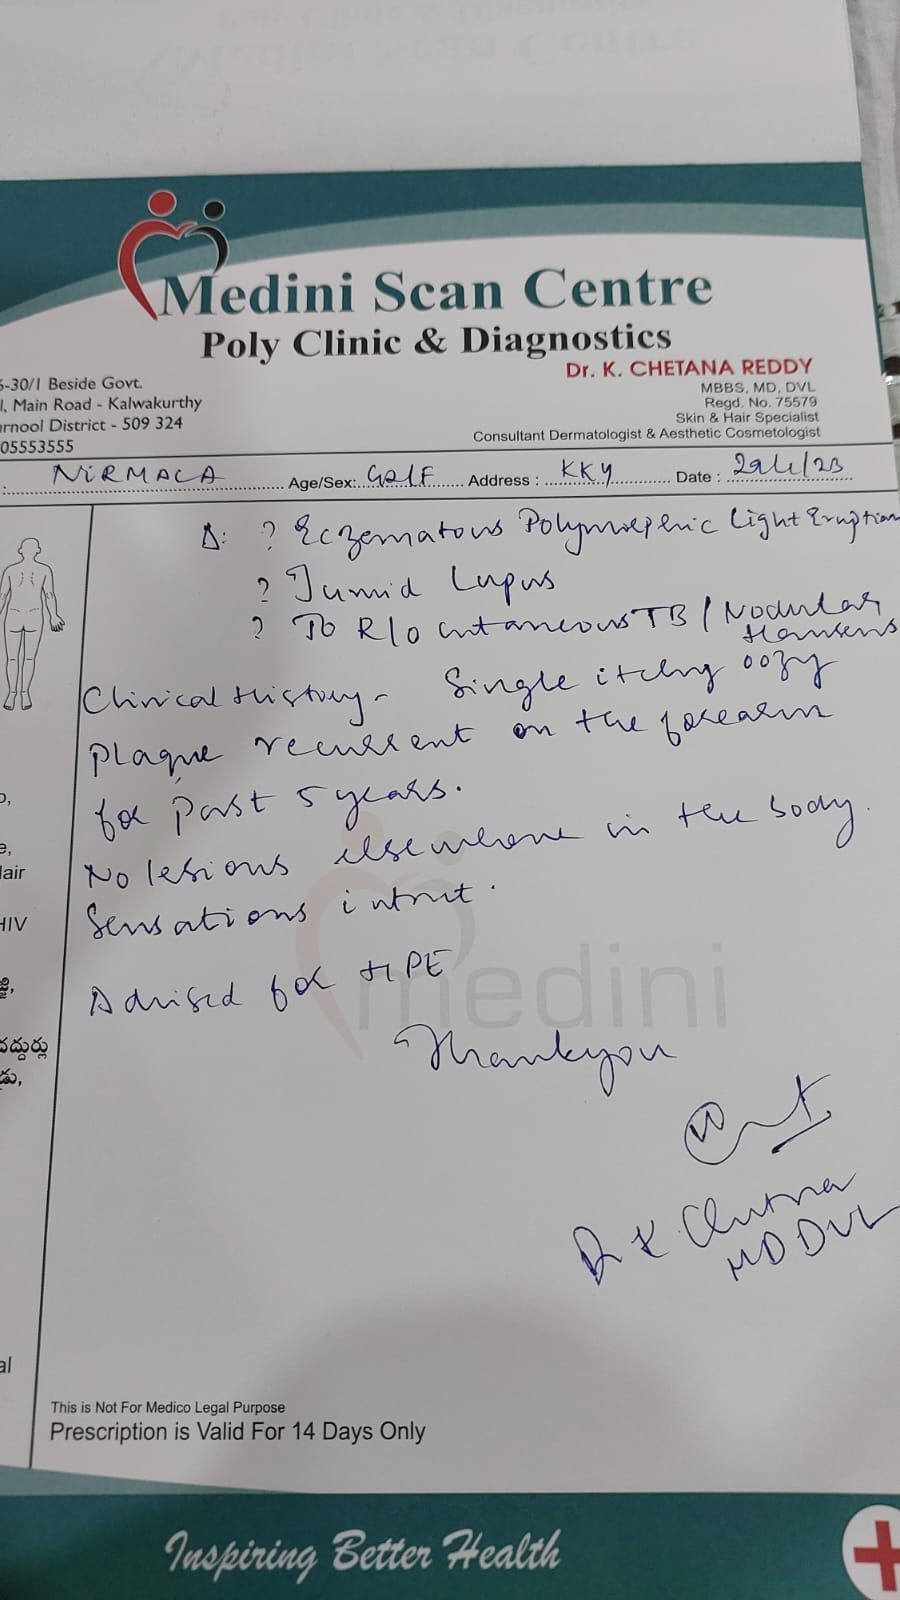 Medini Scan Centre
Poly Clinic & Diagnostics
Dr. K. CHETANA REDDY
MBBS, MD, DVL
Regd. No. 75579
Skin & Hair Specialist
Consultant Dermatologist & Aesthetic Cosmetologist
-30/1 Beside Govt.
l, Main Road - Kalwakurthy
urnool District - 509 324
05553555
NIRMALA Age/Sex: F Address : KKY Date :
Δ: ? Eczematous Polymorphic Light Eruption
? Tumid Lupus
? To R/o cutaneous TB / Nodular
Hansens
Clinical History - Single itchy oozy
plaque recurrent on the forearm
for past 5 years.
No lesions elsewhere in the body.
Sensations intact.
Advised for HPE
Thankyou
Dr K Chetna
MD DVL
medini
air
HIV
దద్దుర్లు
డు,
al
This is Not For Medico Legal Purpose
Prescription is Valid For 14 Days Only
Inspiring Better Health